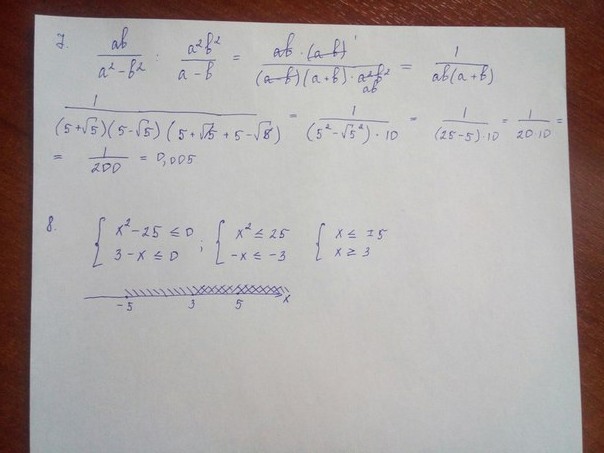 7. ab/(a²-b²) : a²b²/(a-b) = ab·(a-b)¹/((a-b)(a+b)·a²b² ab) = 1/(ab(a+b))
1/((5+√5)(5-√5)(5+√5+5-√5)) = 1/((5²-√5²)·10) = 1/((25-5)·10) = 1/(20·10) =
= 1/200 = 0,005
8. { x²-25 ≤ 0 ; { x² ≤ 25 { x ≤ ±5
3-x ≤ 0 -x ≤ -3 x ≥ 3
-5 3 5 x